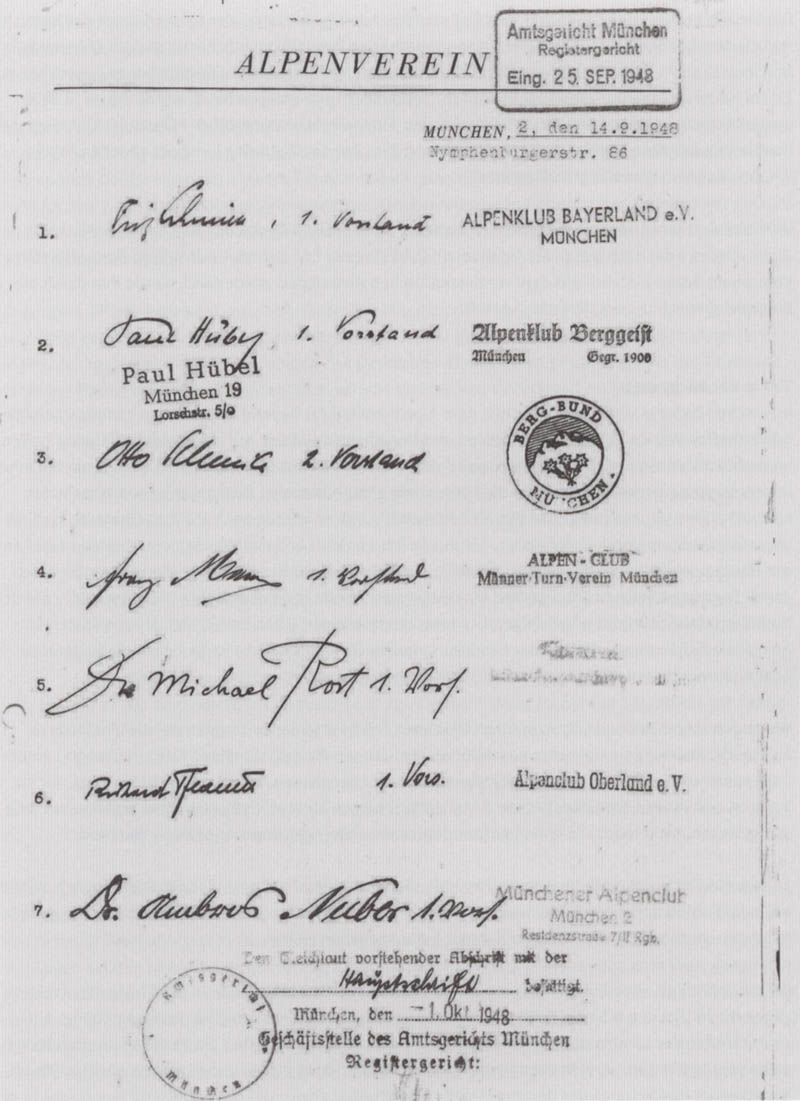 Amtsgericht München
Registergericht
Eing. 25. SEP. 1948
ALPENVEREIN
MÜNCHEN, 2, den 14.9.1948
Nymphenburgerstr. 86
1. , 1. Vorstand ALPENKLUB BAYERLAND e.V.
MÜNCHEN
2. Paul Hübel 1. Vorstand Alpenklub Berggeist
München Gegr. 1900
Paul Hübel
München 19
Lorschstr. 5/0
BERG-BUND
MÜNCHEN
3. Otto 2. Vorstand
4. Franz 1. Vorstand ALPEN-CLUB
Männer-Turn-Verein München
5. Dr. Michael Rost 1. Vors.
6. 1. Vors. Alpenclub Oberland e.V.
7. Dr. Ambros Nuber 1. Vors. Münchener Alpenclub
München 2
Residenzstrasse 7/II Rgb.
Den Gleichlaut vorstehender Abschrift mit der
Hauptschrift bestätigt.
München, den -1. Okt. 1948
Geschäftsstelle des Amtsgerichts München
Registergericht:
Amtsgericht
München